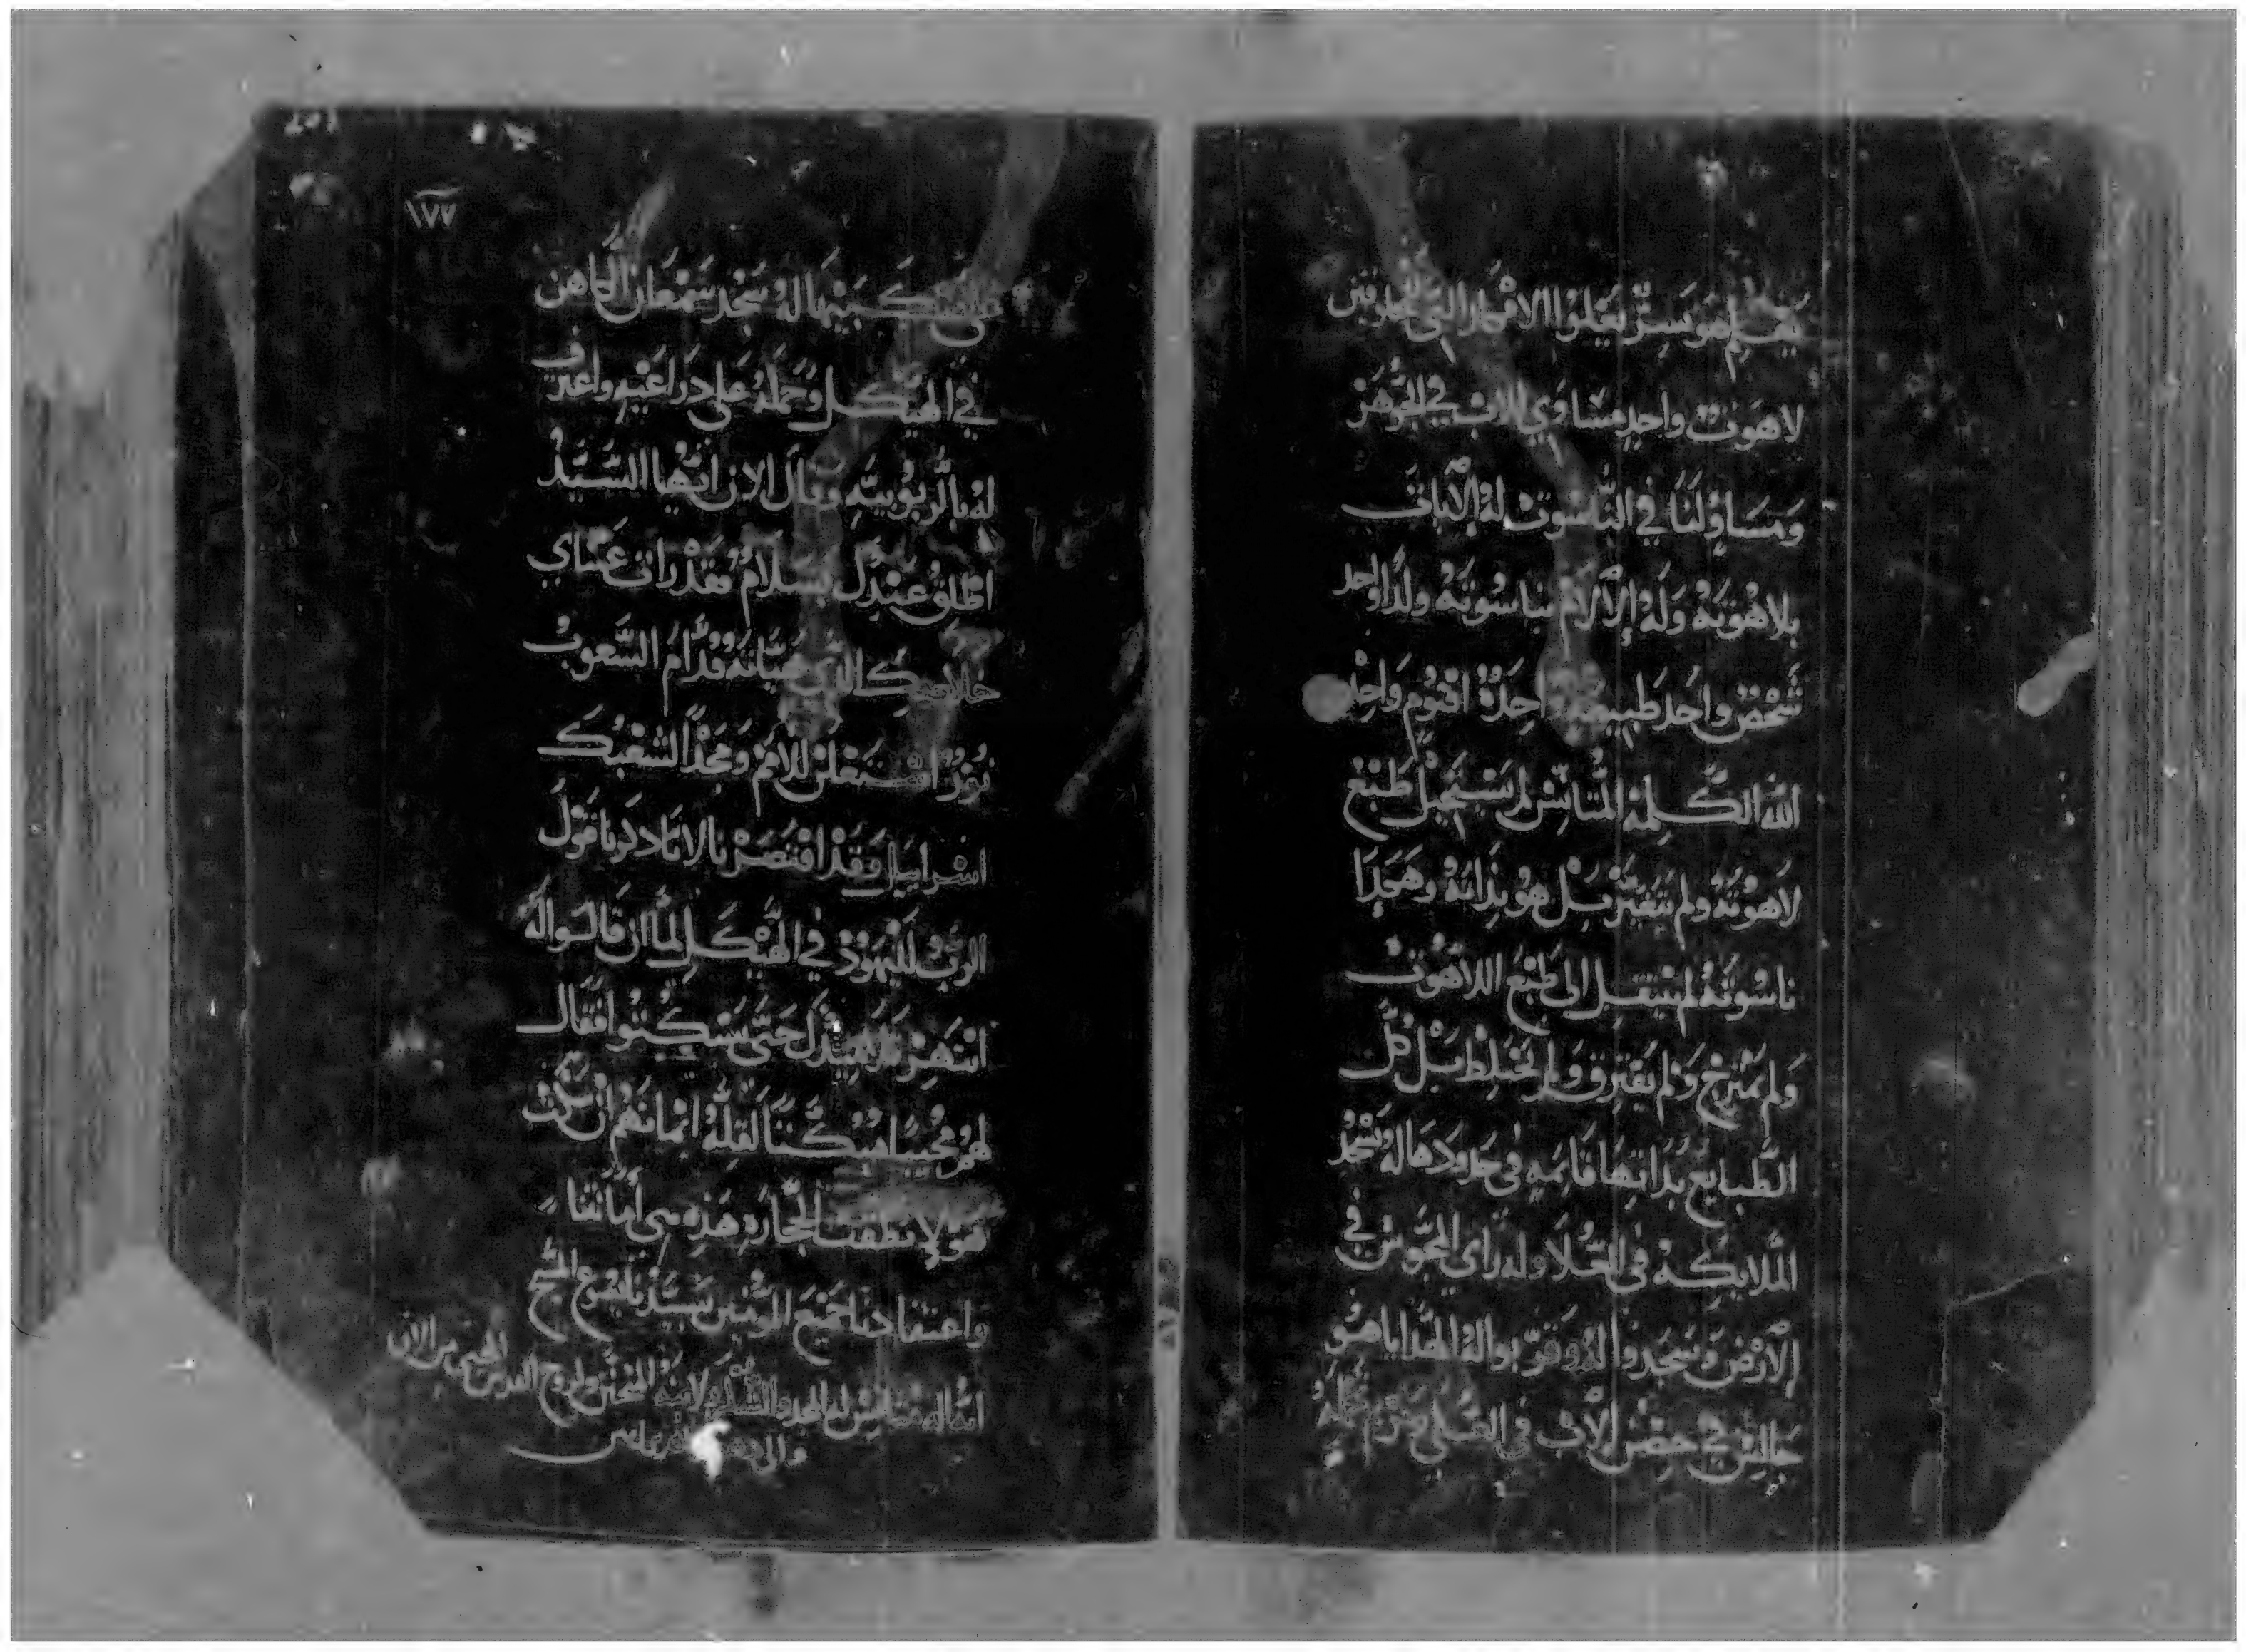 بسر يعلوا الافكار
لاهوت واحد مساوي للاب في الجوهر
ومساوٍ لنا في الناسوت له الايات
بلاهوته وله الآلام بناسوته ولدا واحد
شخص واحد طبيعة واحدة اقنوم واحد
الله الكلمة المتانس لم يستحيل طبع
لاهوته ولم يتغير بل هو بذاته وهكذا
ناسوته لم ينتقل الى طبع اللاهوت
ولم يمتزج ولم يفترق ولم يختلط بل كل
الطبايع بذاتها قايمه في حدودها له تسجد
الملايكه في العلا وله راي المجوس في
الارض وسجدوا له وقربوا له الهدايا هو
جالس في حضن الاب في العلي
١٧٧
ركبتيها له سجد سمعان الكاهن
في الهيكل وحمله على دراعيه واعترف
له بالربوبيته وقال الان ايها السيد
اطلق عبدك بسلام فقد رات عيناي
خلاصك الذي قدام الشعوب
نور استعلن للامم ومجدا لشعبك
اسراييل وقد اقتصرنا لانا ذكرنا قول
الرب لليهود في الهيكل لما ان قالوا له
انتهر تلاميذك حتى يسكتوا فقال
لهم مجيبا مبكتا لقلة ايمانهم ان سكت
هولا نطقت الحجاره هذه هي امانتنا
واعتقادنا جميع المومنين بسيدنا يسوع المسيح
انه اله متانس له المجد ولابيه وروح القدس المحيي من الان
والى